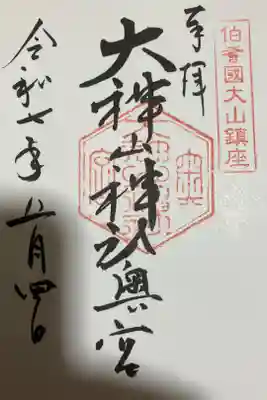 伯耆國大山鎮座
奉拝
大神山神社奧宮
令和七年五月四日